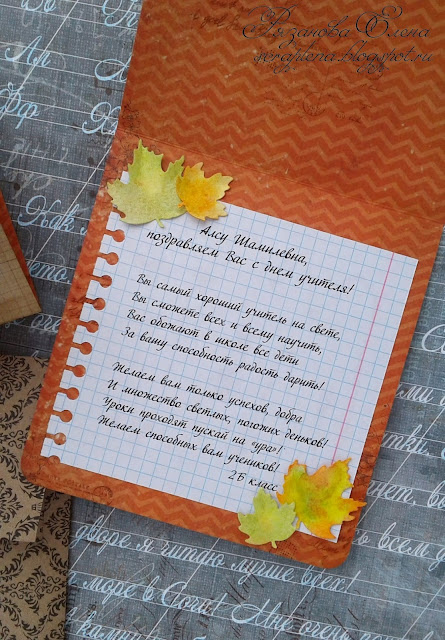 Рязанова Елена
scraplena.blogspot.ru
Алсу Шамилевна,
поздравляем Вас с днем учителя!
Вы самый хороший учитель на свете,
Вы сможете всех и всему научить,
Вас обожают в школе все дети
За вашу способность радость дарить!
Желаем вам только успехов, добра
И множество светлых, погожих деньков!
Уроки проходят пускай на «ура»!
Желаем способных вам учеников!
2Б класс
море я читаю лучше всех!
море в Сочи! Мне очень